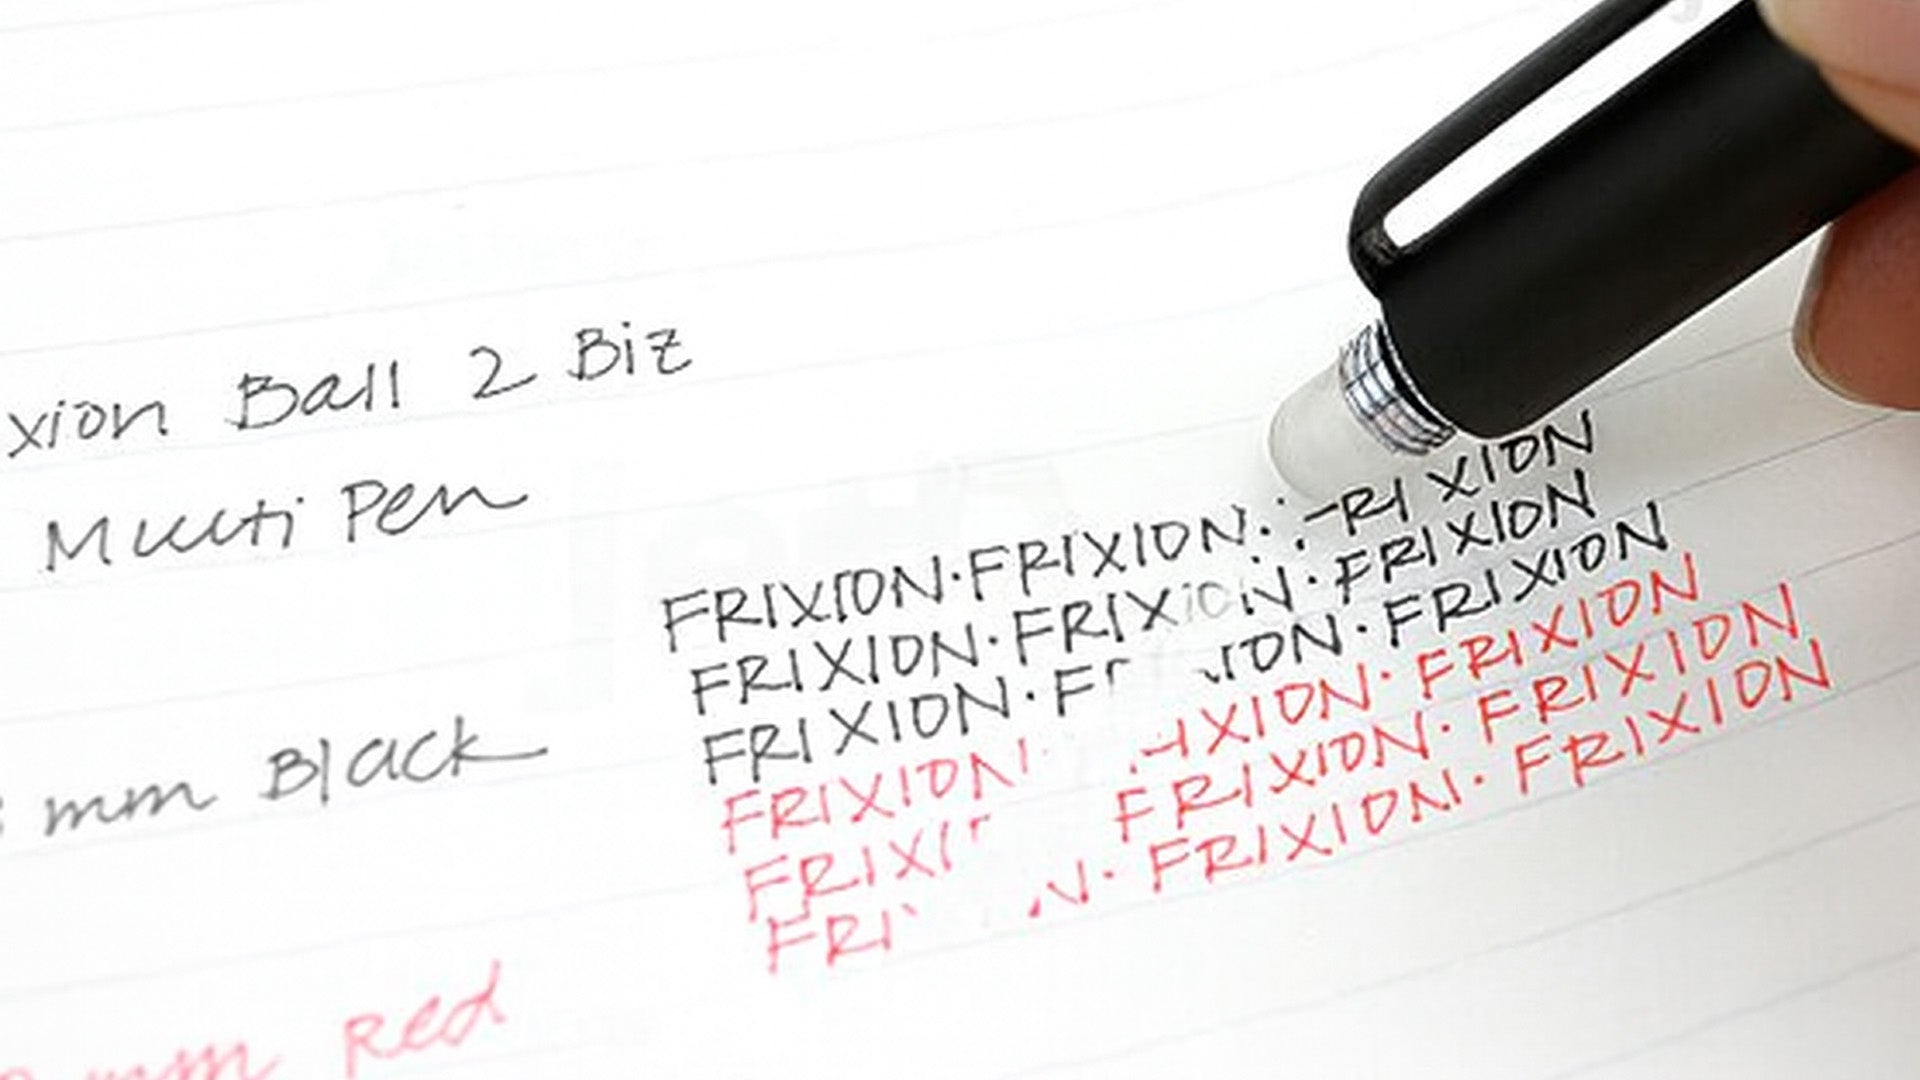 xion Ball 2 Biz
Multi Pen
mm Black
mm Red
FRIXION·FRIXION· RIXION
FRIXION·FRIXION·FRIXION
FRIXION·F ION·FRIXION
FRIXION· IXION·FRIXION
FRIXI FRIXION·FRIXION
FRI N·FRIXION·FRIXION